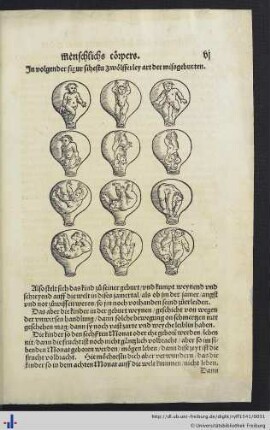 Menschlichs cörpers. vj
In volgender figur sihestu zwölfferley art der missgeburten.
Also stelt sich das kind zů seiner geburt / vnd kumpt weynend vnd
schreyend auff die welt in dises jamertal / als ob jm der jamer / angst
vnd not zůwissen weren / so jm noch vorhanden seind zůerleiden.
Das aber die kinder in der geburt weynen / geschicht von wegen
der vnwirsen handlung / dann solche bewegung on schmertzen nit
geschehen mag / dann sy noch vast zarte vnd weyche leiblin haben.
Die kinder so den sechsten Monat oder ehe geboren werden / leben
nit / dann die frucht ist noch nicht gäntzlich volbracht / aber so im siben
benden Monat geboren werden / mögen leben / dann dise zyt ist die
frucht volbracht. Hie möchtestu dich aber verwundern / das die
kinder so in dem achten Monat auff die welt kummen / nicht leben.
Dann
http://dl.ub.uni-freiburg.de/diglit/ryff1541/0031
© Universitätsbibliothek Freiburg